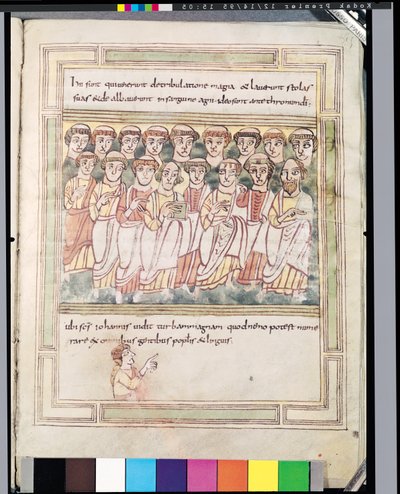 Kodak Premier 12/14/95 15:05
hii sunt qui uenerunt detribulatione magia & lauerunt stolas
suas & de albauerunt insanguine agni · ideo sunt ante thronum di ·
ubi scs iohannis uidit turbam magnam quod nemo potest nume
rare ex omnibus gentibus poplis & linguis ·